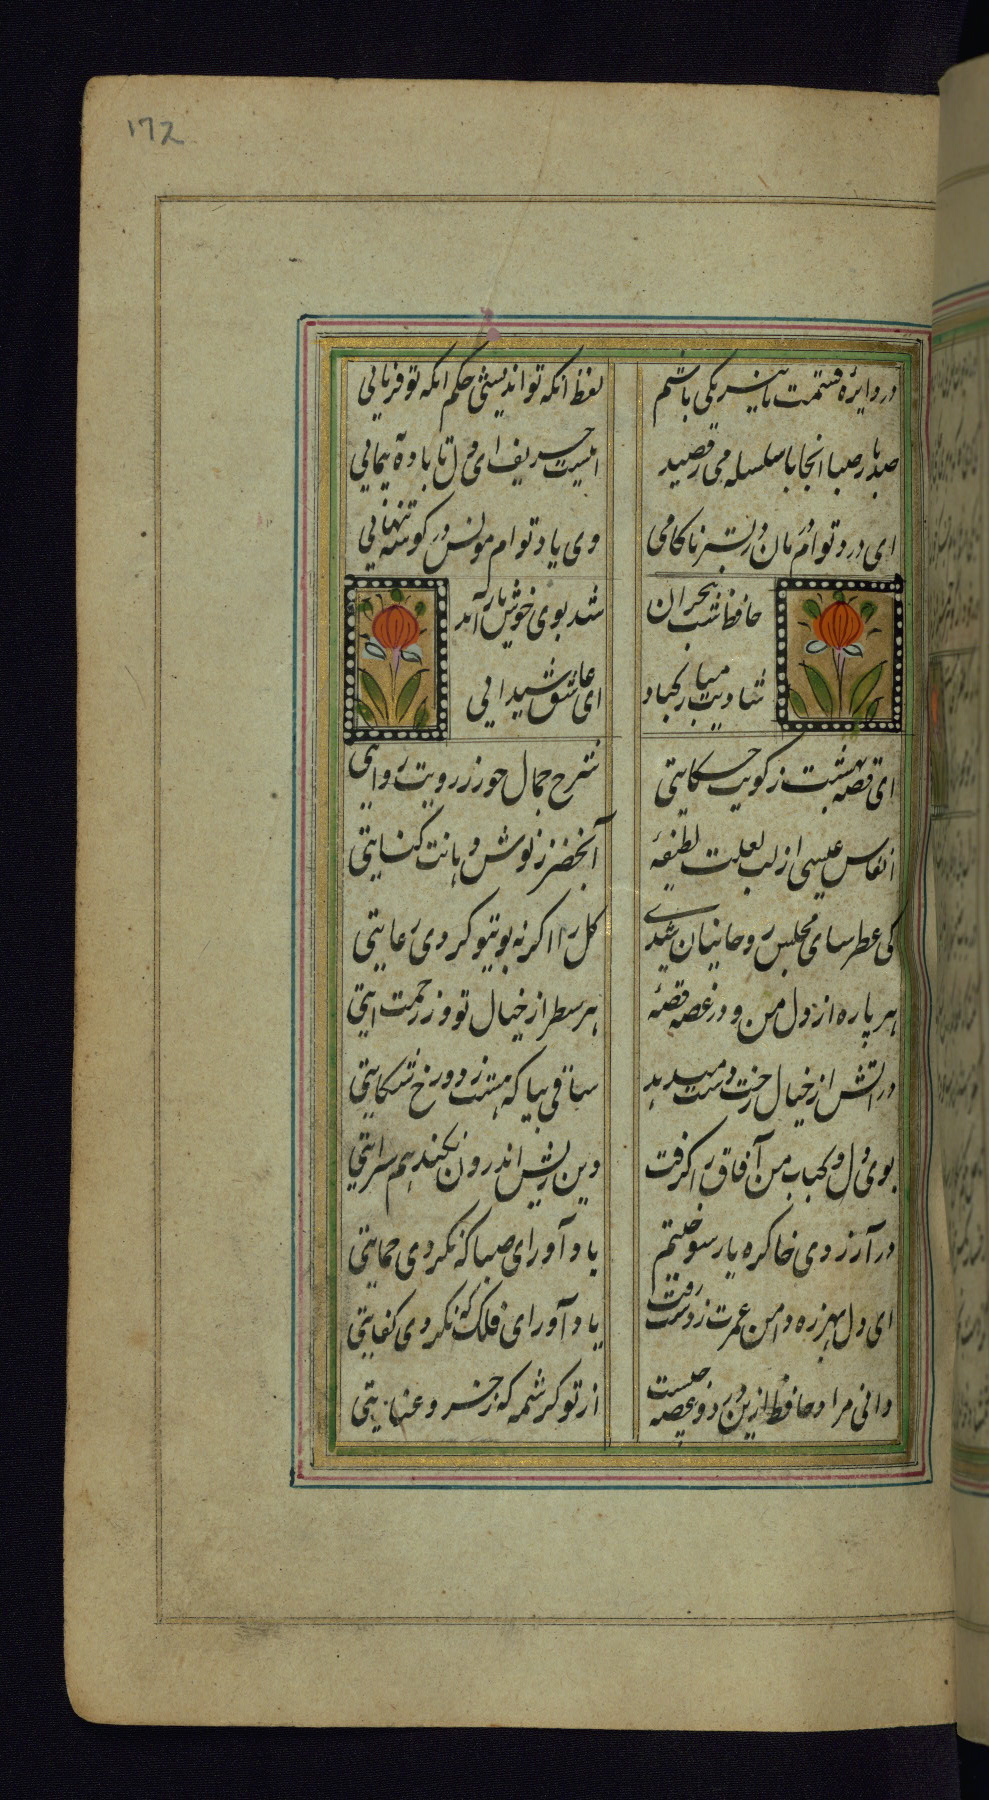 172
در دایره قسمت تا بیزیکی باشم لفظ آنکه تو اندیشی حکم آنکه تو فرمایی
صد بار صبا اینجا با سلسله می رقصید اینست حریف ای دل تا باده نه پیمایی
ای درد توام درمان در بستر ناکامی وی یاد توام مونس در گوشه تنهایی
حافظ شب هجران شد بوی خوش یار آمد
شادیت مبارکباد ای عاشق شیدایی
ای قصه بهشت ز کویت حکایتی شرح جمال حور ز رویت روایتی
انفاس عیسی از لب لعلت لطیفه آبخضر ز نوش دهانت کنایتی
کی عطرسای مجلس روحانیان شدی گل را اگر نه بوی تو کردی رعایتی
هر پاره از دل من و در غصه قصه هر سطر از خیال تو وز رحمت ایتی
در اتش از خیال رخت دست میدهد ساقی بیا که هست ز دوزخ شکایتی
بوی دل کباب من آفاق را گرفت وین ریش اندرون نکند هم سرایتی
در آرزوی خاکره یار سوختیم یاد آور ای صبا که نکردی حمایتی
ای دل بهرزه دامن عمرت ز دست رفت یاد آور ای فلک که نکردی کفایتی
دانی مراد حافظ ازین درد و غصه چیست از تو کرشمه که ز خسرو عنایتی